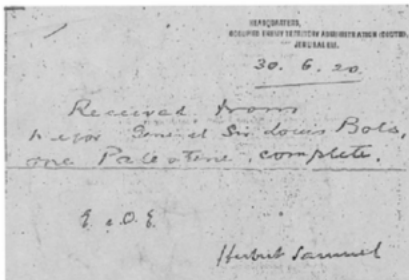 HEADQUARTERS,
OCCUPIED ENEMY TERRITORY ADMINISTRATION (SOUTH)
JERUSALEM.
30. 6. 20.
Received from
Major General Sir Louis Bols,
one Palestine, complete.
E. & O. E.
Herbert Samuel